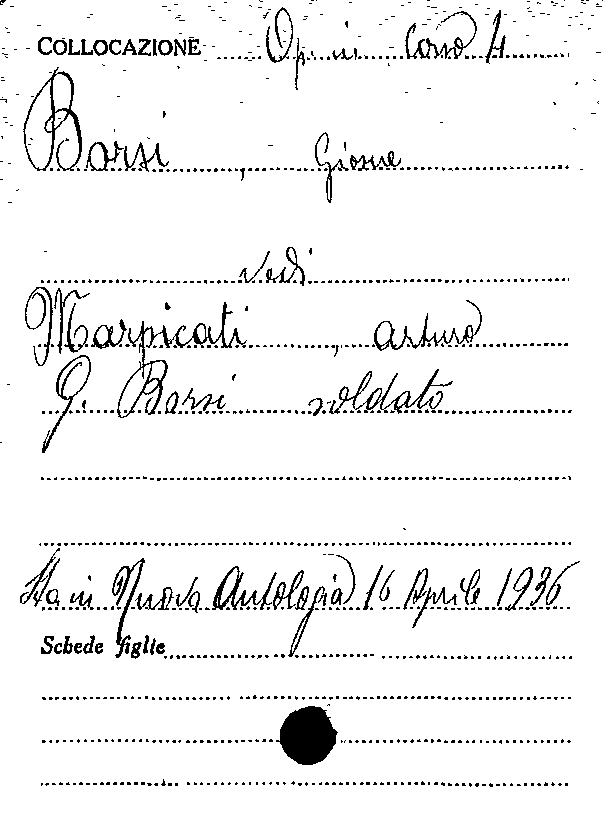 COLLOCAZIONE Op. in Corso 4
Borsi, Giosue
Vedi
Marpicati, Arturo
G. Borsi soldato
Sta in Nuova Antologia 16 Aprile 1936
Schede figlie